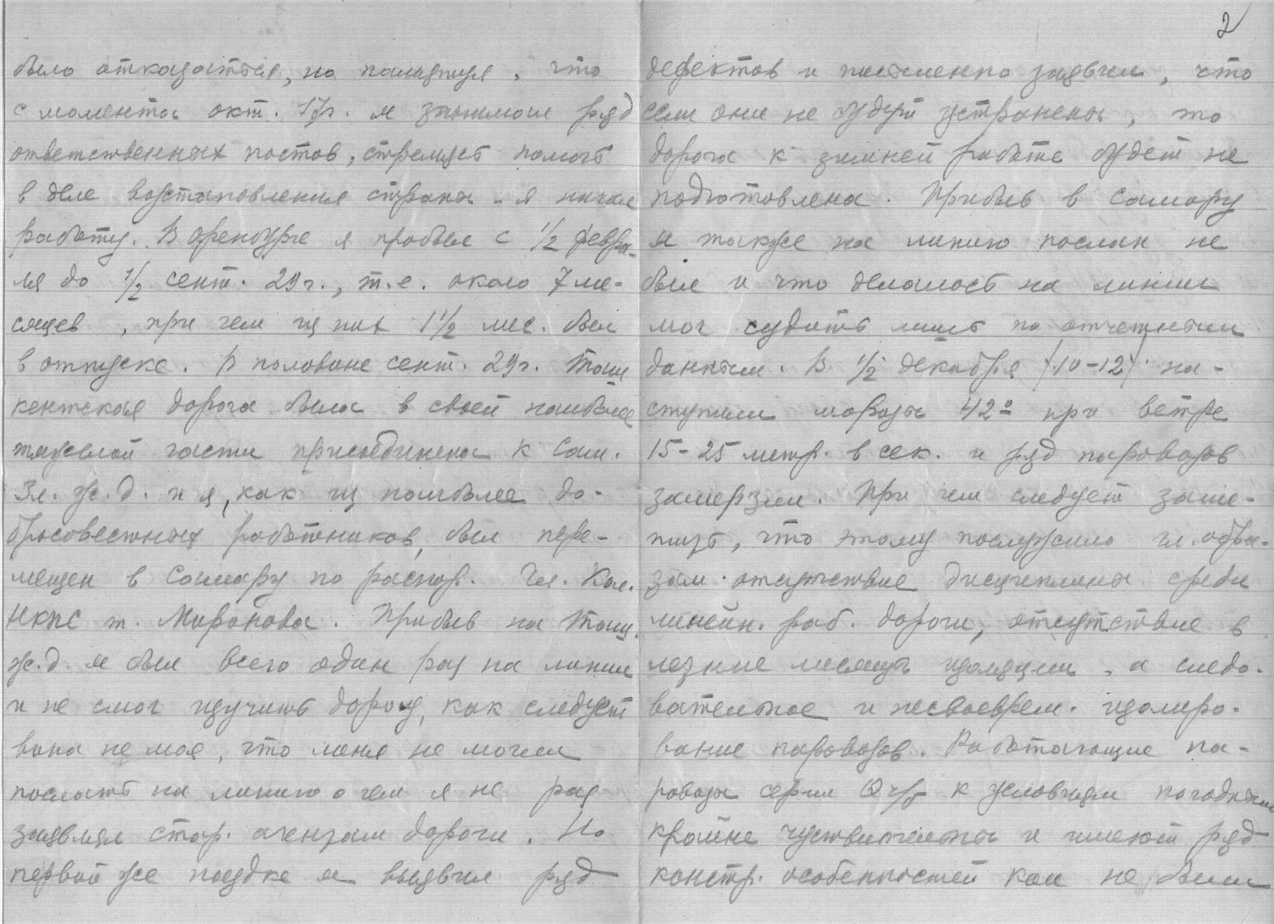 было отказаться, но памятуя, что
с момента окт. 17г. я занимал ряд
ответственных постов, стремясь помочь
в деле востановления страны - я начал
работу. В Оренбурге я пробыл с 1/2 февра-
ля до 1/2 сент. 29г., т.е. около 7 ме-
сяцев, при чем из них 1 1/2 мес. был
в отпуске. В половине сент. 29г. Таш
кентская дорога была в своей наиболее
тяжелой части присоединена к Сам.
Зл. ж.д. и я, как из наиболее до-
бросовестных работников, был пере-
мещен в Самару по распор. Чл. Кол.
НКПС т. Миронова. Прибыв на Таш.
ж.д. я был всего один раз на линии
и не смог изучить дорогу, как следует
вина не моя, что меня не могли
послать на линию о чем я не раз
заявлял стар. агентам дороги. По
первой же поездке я выявил ряд
2
дефектов и письменно заявил, что
если они не будут устранены, то
дорога к зимней работе будет не
подготовлена. Прибыв в Самару
я также на линию послан не
был и что делалось на линии
мог судить лишь по отчетным
данным. В 1/2 декабря (10-12) на-
ступили морозы 42° при ветре
15-25 метр. в сек. и ряд паровозов
замерзли. При чем следует заме-
тить, что этому послужило гл. обра-
зом отсутствие дисциплины среди
линейн. раб. дороги, отсутствие в
летние месяцы изоляции, а следо-
вательное и несвоеврем. изолиро-
вание паровозов. Работающие па-
ровозы серии к условиям погодным
крайне чуствительны и имеют ряд
констр. особенностей как не были